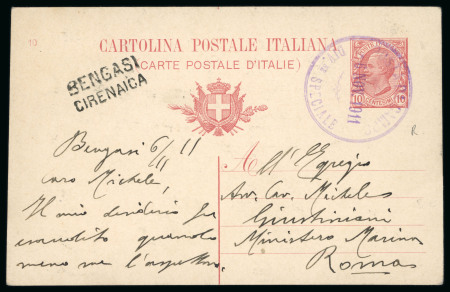 10
CARTOLINA POSTALE ITALIANA
(CARTE POSTALE D'ITALIE)
BENGASI
CIRENAICA
DIV.NE SPECIALE
1911
10 CENTESIMI 10
Bengasi 6/11 11
caro Michele,
Il mio desiderio fu
esaudito quando
meno me l'aspettavo
All' Egregio
Avv. Cav. Michele
Giustiniani
Ministero Marina
Roma
R